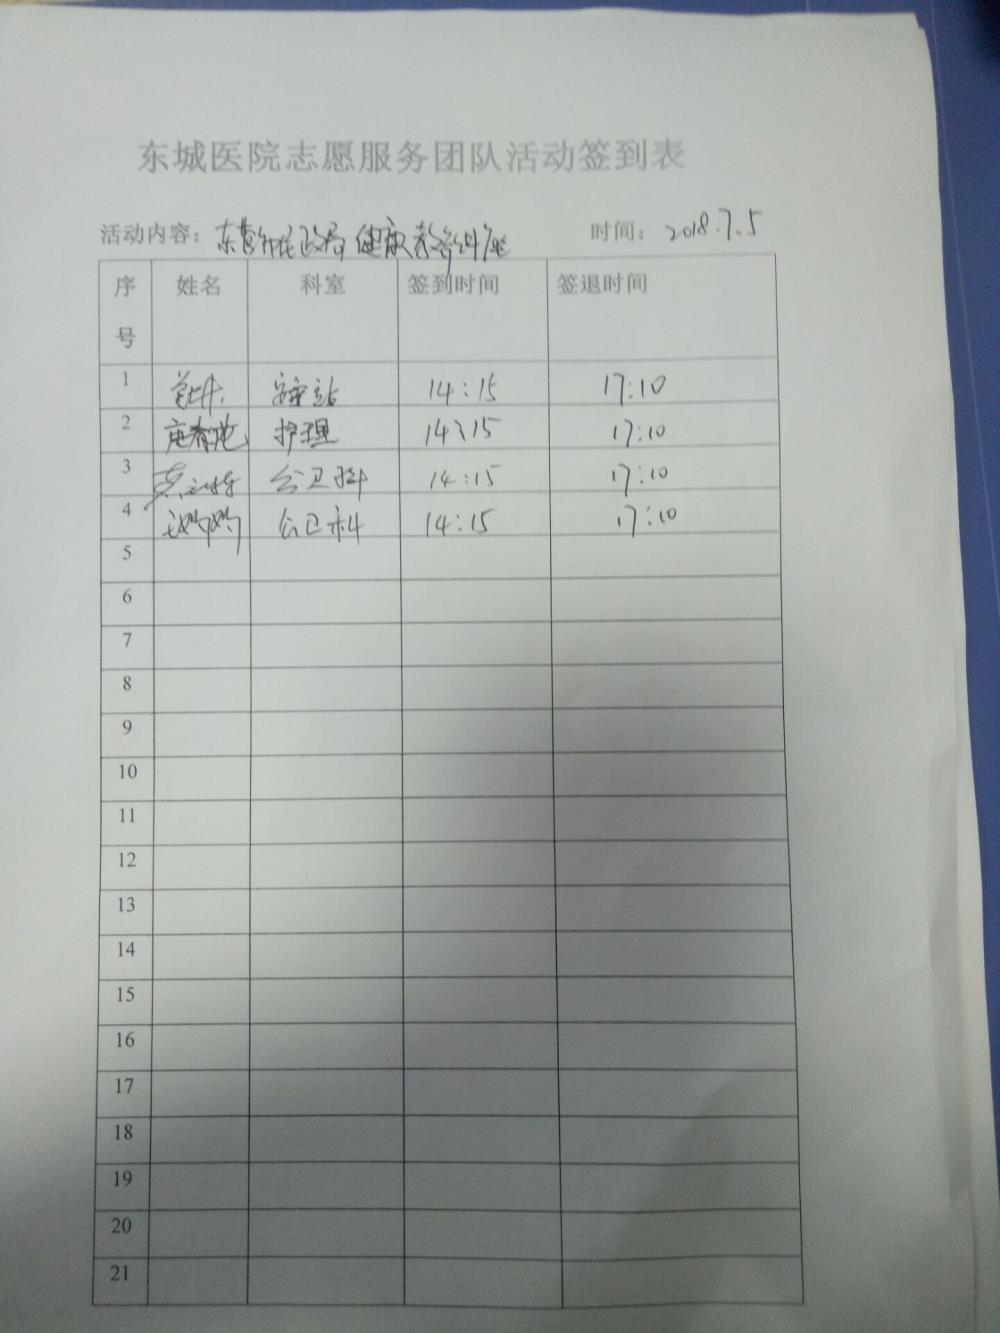 东城医院志愿服务团队活动签到表
活动内容：东营市民政局健康教育讲座 时间：2018.7.5
序号 姓名 科室 签到时间 签退时间
1 14:15 17:10
2 护理 14:15 17:10
3 公卫科 14:15 17:10
4 公卫科 14:15 17:10
5
6
7
8
9
10
11
12
13
14
15
16
17
18
19
20
21